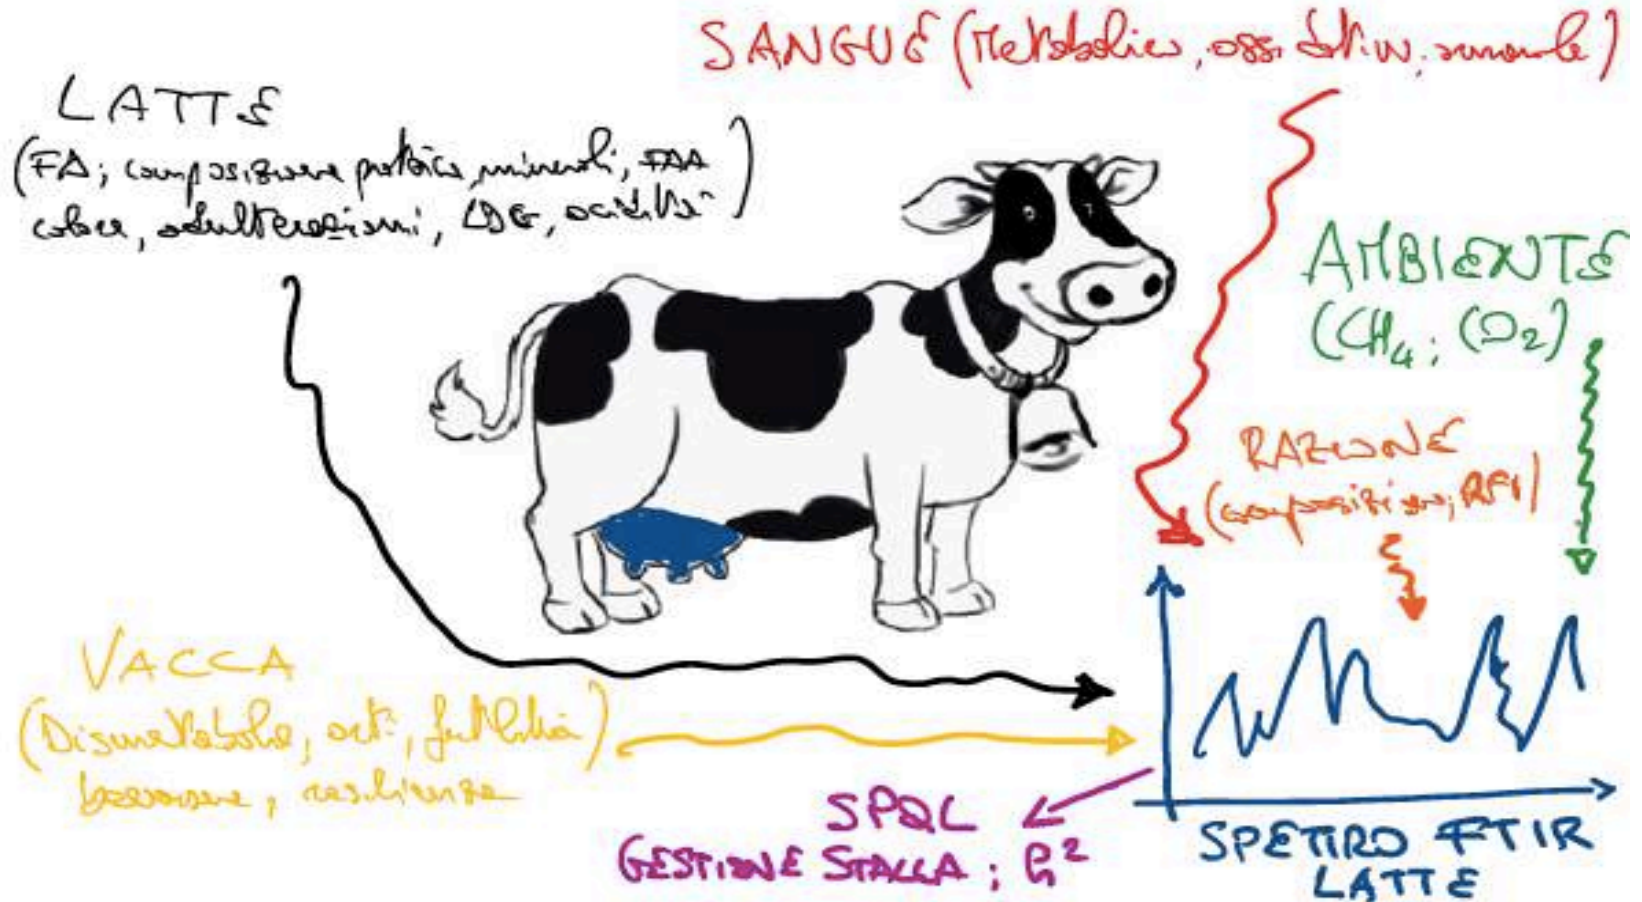 SANGUE (Metabolico, ossidativo, minerale)
LATTE
(FA; composizione proteica, minerali, FAA
colore, adulterazioni, LDG, acidità)
AMBIENTE
(CH₄; CO₂)
RAZIONE
(composizione, RFI)
VACCA
(Dismetabolie, arti, fertilità)
benessere, resilienza
SPQL
GESTIONE STALLA; h²
SPETTRO FTIR
LATTE